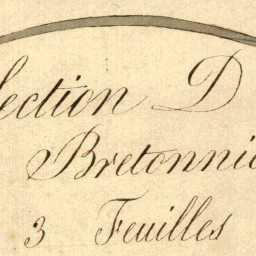 Section D
Bretonni
3 Feuilles